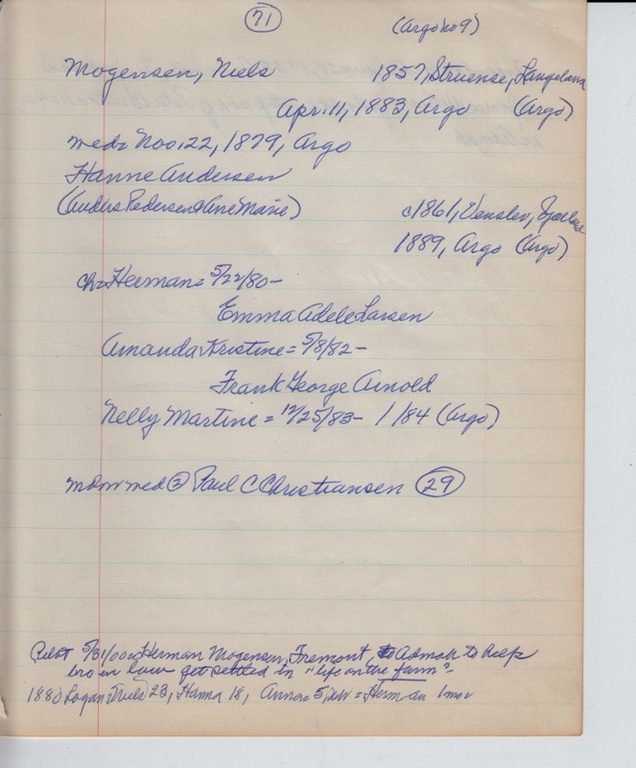 71
(Argo no 9)
Mogensen, Niels 1857, Struense, Langeland
Apr. 11, 1883, Argo (Argo)
med = Nov. 22, 1879, Argo
Hanne Andersen
(Anders Pedersen & Ane Marie) c1861, Venslev, Sjaelland
1889, Argo (Argo)
ch = Herman = 5/22/80 -
Emma Adele Larsen
Amanda Kristine = 5/8/82 -
Frank George Arnold
Nelly Martine = 12/25/83 - 1 /84 (Argo)
med 2 Paul C Christiansen 29
Pilot 5/31/00 = Herman Mogensen, Fremont, to Admah to help
bro in law get settled in "life on the farm" -
1880 Logan Niels 23, Hanna 18, Anna = 5, = Herman 1 mo